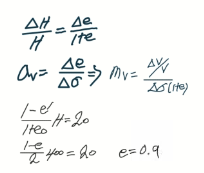 ΔH/H = Δe/1+e
av = Δe/Δσ ⇒ mv = ΔV/V / Δσ(1+e)
1-e'/1+e₀ H = 20
1-e/2 400 = 20 e = 0.9